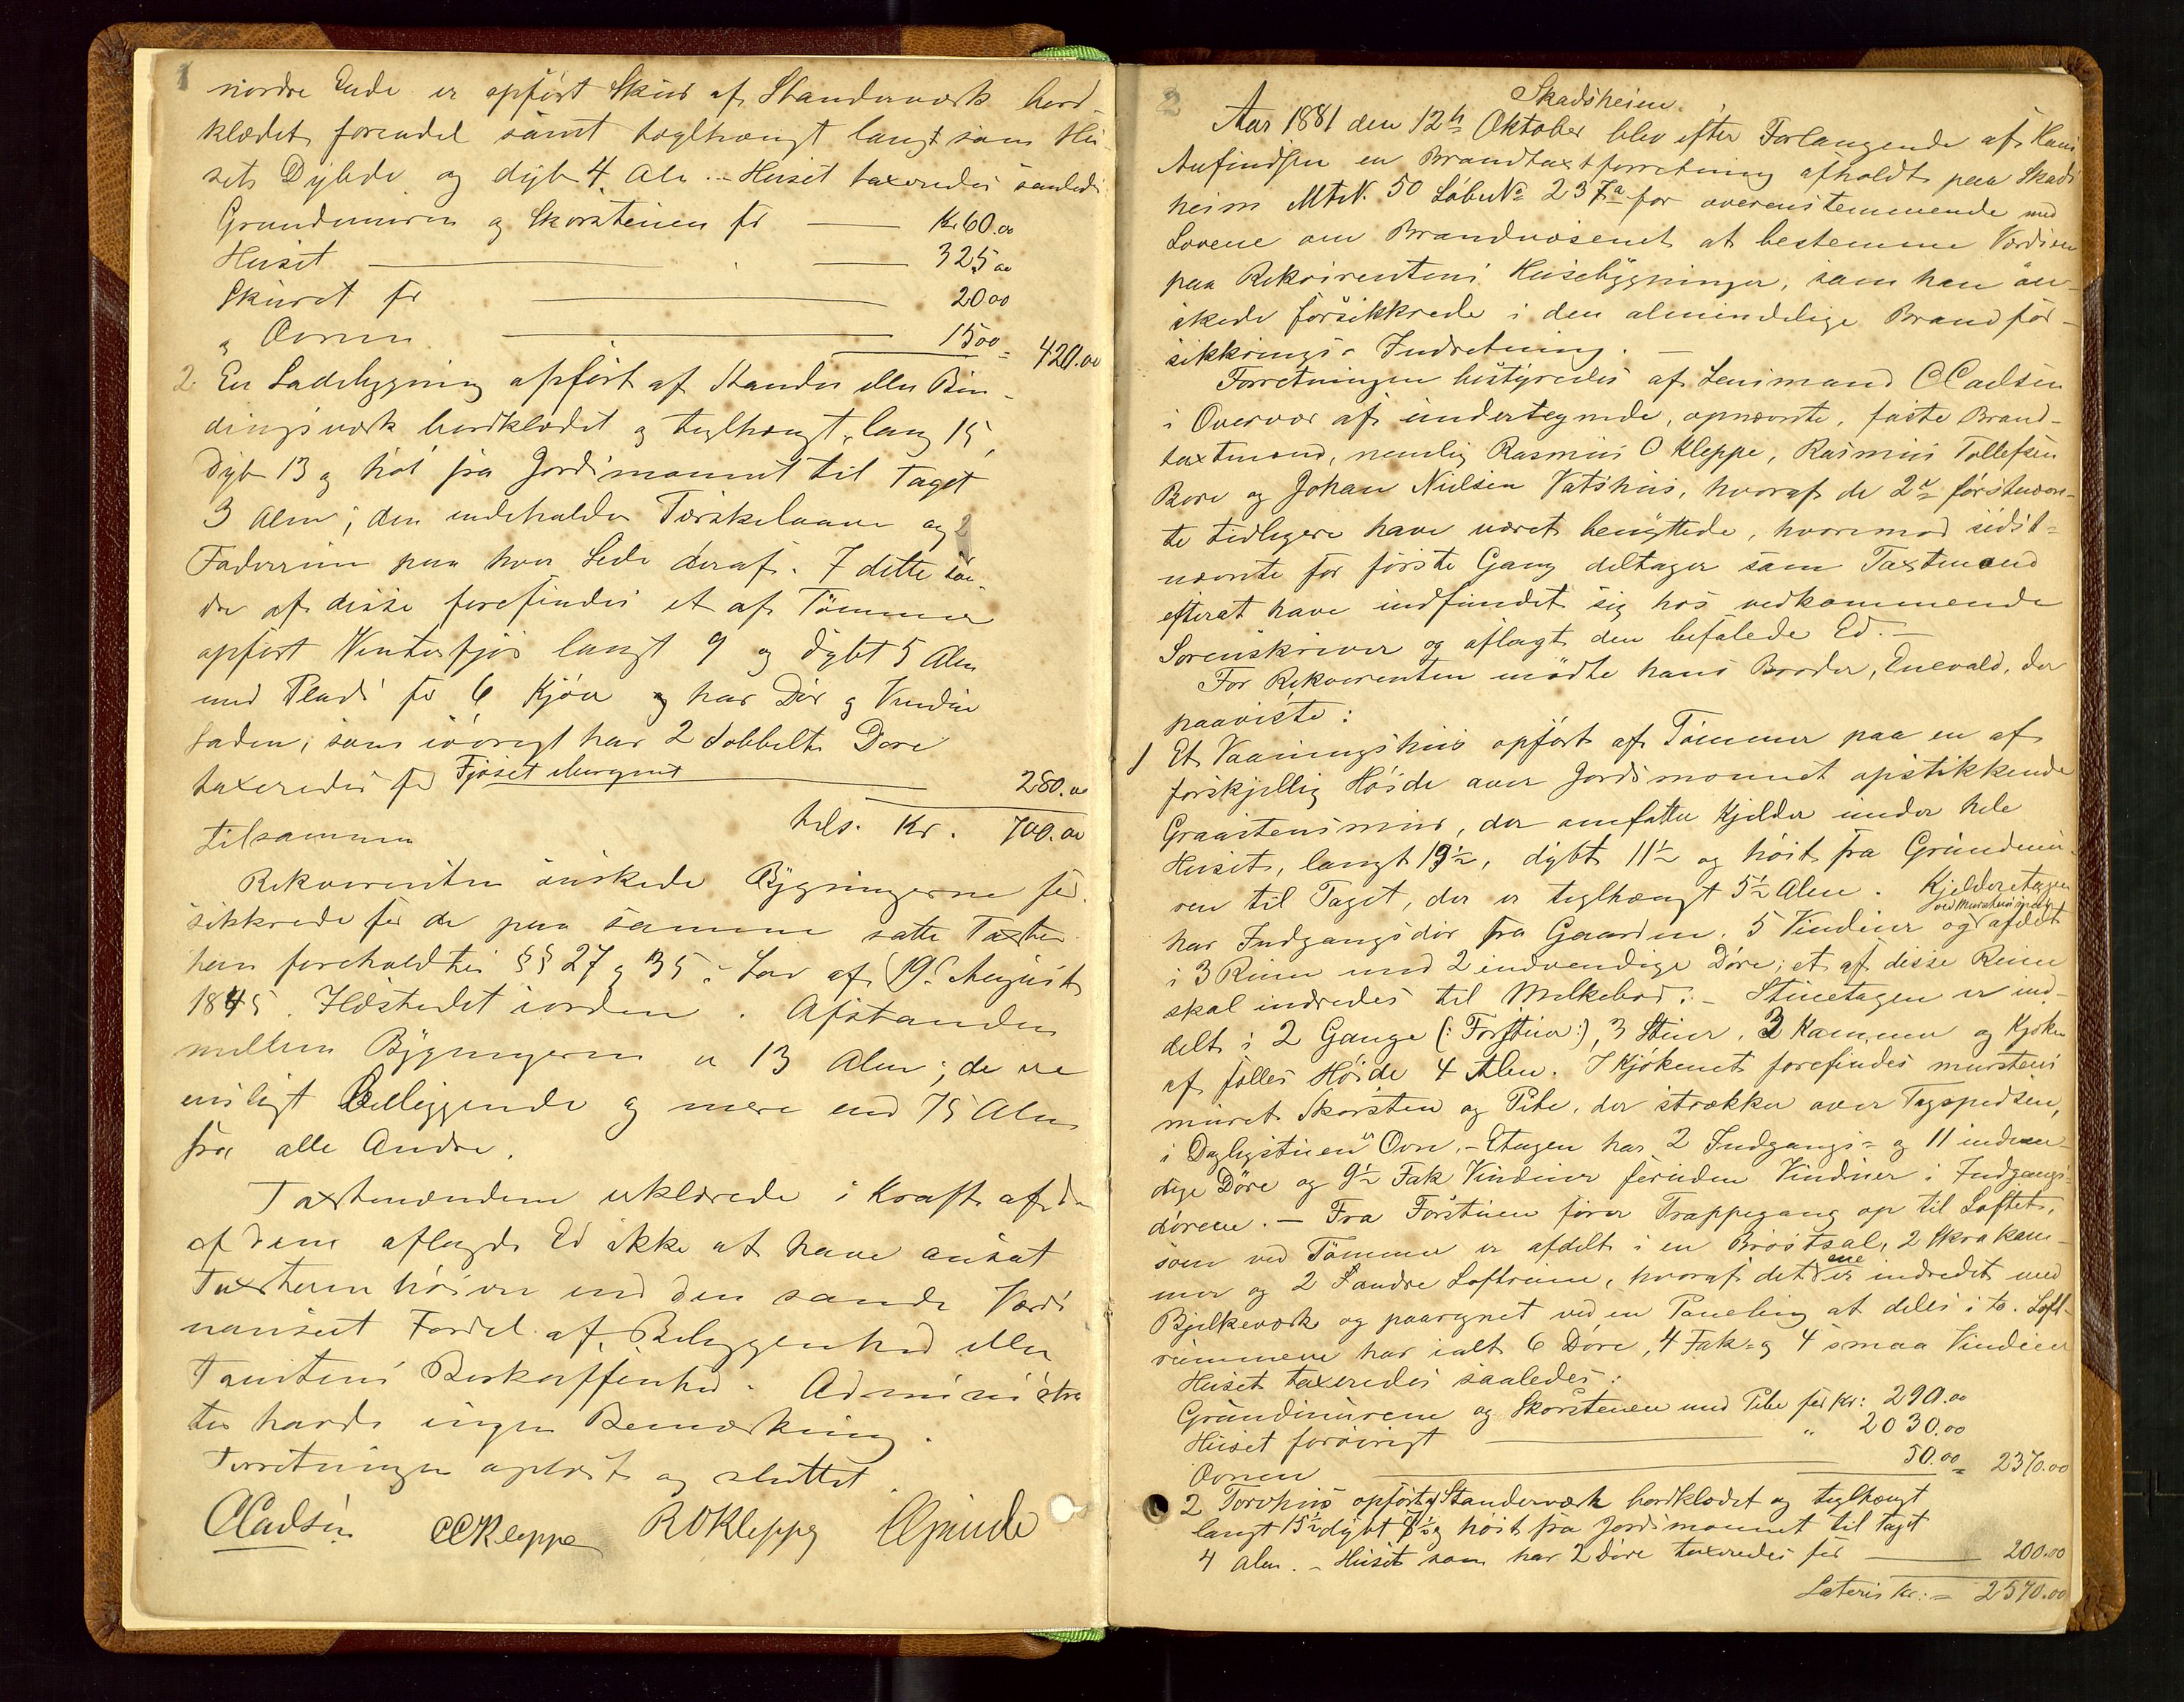 1
nordre Ende er opført Skur af Standerværk bord-
klædet foreudel samt teglhængt langt som Hu-
sets Dybde og dybt 4 Alen. - Huset taxeredes saaledes
Grundmuren og Skorstenen for Kr 60.00
Huset 325.00
Skuret for 20.00
og Ovnen 15.00 = 420.00
2. En Ladebygning opført af Stander eller Bin-
dingsværk bordklædet og teglhængt, lang 15,
dyb 13 og høi fra Jordsmonnet til Taget
3 Alen; den indeholder Tærskelaave og 2
Foderrum paa hver Side deraf. I dette søn-
dre af disse forefindes et af Tømmer
opført Vinterfjøs langt 9 og dybt 5 Alen
med Plads for 6 Kjør og har Dør og Vindue
Laden, som iøvrigt har 2 dobbelte Døre
taxeredes for Fjøset iberegnet 280.00
tilsammen tils. Kr. 700.00
Rekvirenten ønskede Bygningerne for-
sikkrede for de paa samme satte Taxter
han foreholdtes §§ 27 og 35 i Lov af 19. August
1845. Ildstedet iorden. Afstanden
mellem Bygningerne er 13 Alen; de ere
ensligt Beliggende og mere end 75 Alen
fra alle Andre.
Taxtmændene erklærede i Kraft af den
af dem aflagde Ed ikke at have ansat
Taxterne høiere end den sande Værdi
uanseet Fordel af Beliggenhed eller
Tomtens Beskaffenhed. Administra
tor havde ingen Bemærkning.
Forretningen oplæst og sluttet.
CCadsin CCKleppe ROKleppe
2
Skadsheim.
Aar 1881 den 12te Oktober blev efter Forlangende af Hans
Aufindsen en Brandtaxtforretning afholdt paa Skads
heim MtN. 50 LøbeNo 237a for overenstemmende med
Lovene om Brandvæsenet at bestemme Værdien
paa Rekvirentens Husebygninger, som han øn-
skede forsikkrede i den almindelige Brandfor-
sikkrings-Indretning. -
Forretningen bestyredes af Lensmand CCadsin
i Overvær af undertegnede, opnævnte, faste Brand-
taxtmænd, nemlig Rasmus O Kleppe, Rasmus Tollefsen
Bore og Johan Nielsen Vatshus, hvoraf de 2de førstnævn-
te tidligere have været benyttede, hvorimod sidst-
nævnte for første Gang deltager som Taxtmand
efterat have indfundet sig hos vedkommende
Sorenskriver og aflagt den befalede Ed. -
For Rekvirenten mødte hans Broder, Enevald, der
paaviste:
1 Et Vaaningshus opført af Tømmer paa en af
forskjellig Høide over Jordsmonnet opstikkende
Graastensmur, der omfatter Kjelder under hele
Huset, langt 19½, dybt 11½ og høit fra Grundmu-
ren til Taget, der er teglhængt 5½ Alen. Kjelderetagen
har Indgangsdør fra Gaarden, 5 Vinduer og ved Murstensmur afdelt
i 3 Rum med 2 indvendige Døre; et af disse Rum
skal indredes til Melkebod. - Stueetagen er ind-
delt i 2 Gange (: Forstuer:), 3 Stuer, 3 Kammer og Kjøken
af fælles Høide 4 Alen. I Kjøkenet forefindes murstens
muret Skorsten og Pibe, der strækker over Tagspidsen,
i Dagligstuen Ovn. - Etagen har 2 Indgangs- og 11 indven-
dige Døre og 9½ Fak Vinduer foruden Vinduer i Indgangs-
dørene. - Fra Forstuen fører Trappegang op til Loftet,
som ved Tømmer er afdelt i en Brøstsal, 2 Skraakam-
mer og 2 andre Loftrum, hvoraf det ene er indredet med
Bjelkeværk og paaregnet ved en Paneling at deles i to. Loft-
rummene har ialt 6 Døre, 4 Fak- og 4 smaa Vinduer
Huset taxeredes saaledes:
Grundmurene og Skorstenen med Pibe for Kr: 290.00
Huset forøvrigt " 2030.00
Ovnen 50.00 = 2370.00
2 Torvhus opført af Standerværk bordklædet og teglhængt
langt 15½ dybt 8½ og høit fra Jordsmonnet til Taget
4 Alen. - Huset som har 2 Døre taxeredes for 200.00
Lateris Kr: = 2570.00